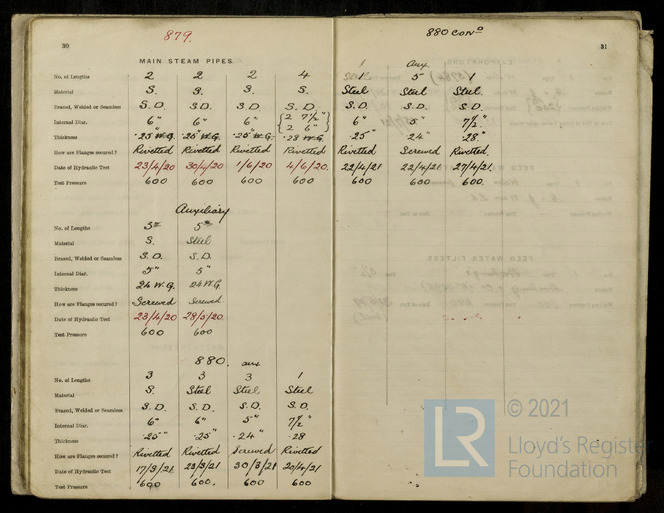 30
879.
MAIN STEAM PIPES.
No. of Lengths 2 2 2 4
Material S. S. S. S.
Brazed, Welded or Seamless S.D. S.D. S.D. S.D.
Internal Diar. 6" 6" 6" {2 7½" 2 6"}
Thickness ·25 W.G. ·25 W.G. ·25 W.G. ·28 W.G.
How are Flanges secured? Rivetted Rivetted Rivetted Rivetted
Date of Hydraulic Test 23/4/20 30/4/20 1/6/20 4/6/20.
Test Pressure 600 600 600 600
Auxiliary
No. of Lengths 3 5
Material S. Steel
Brazed, Welded or Seamless S.D. S.D.
Internal Diar. 5" 5"
Thickness 24 W.G. 24 W.G.
How are Flanges secured? Screwed Screwed
Date of Hydraulic Test 23/4/20 28/5/20
Test Pressure 600 600
880. aux
No. of Lengths 3 3 3 1
Material S. Steel Steel Steel
Brazed, Welded or Seamless S.D. S.D. S.D. S.D.
Internal Diar. 6" 6" 5" 7½"
Thickness ·25" ·25" ·24" ·28
How are Flanges secured? Rivetted Rivetted Screwed Rivetted
Date of Hydraulic Test 17/3/21 23/3/21 30/3/21 20/4/21
Test Pressure 600 600. 600 600
880 cono
31
1 aux
1 5 1
Steel Steel Steel
S.D. S.D. S.D.
6" 5" 7½"
·25" ·24" ·28"
Rivetted Screwed Rivetted
22/4/21 22/4/21 27/4/21
600 600 600.
LR
© 2021
Lloyd's Register
Foundation